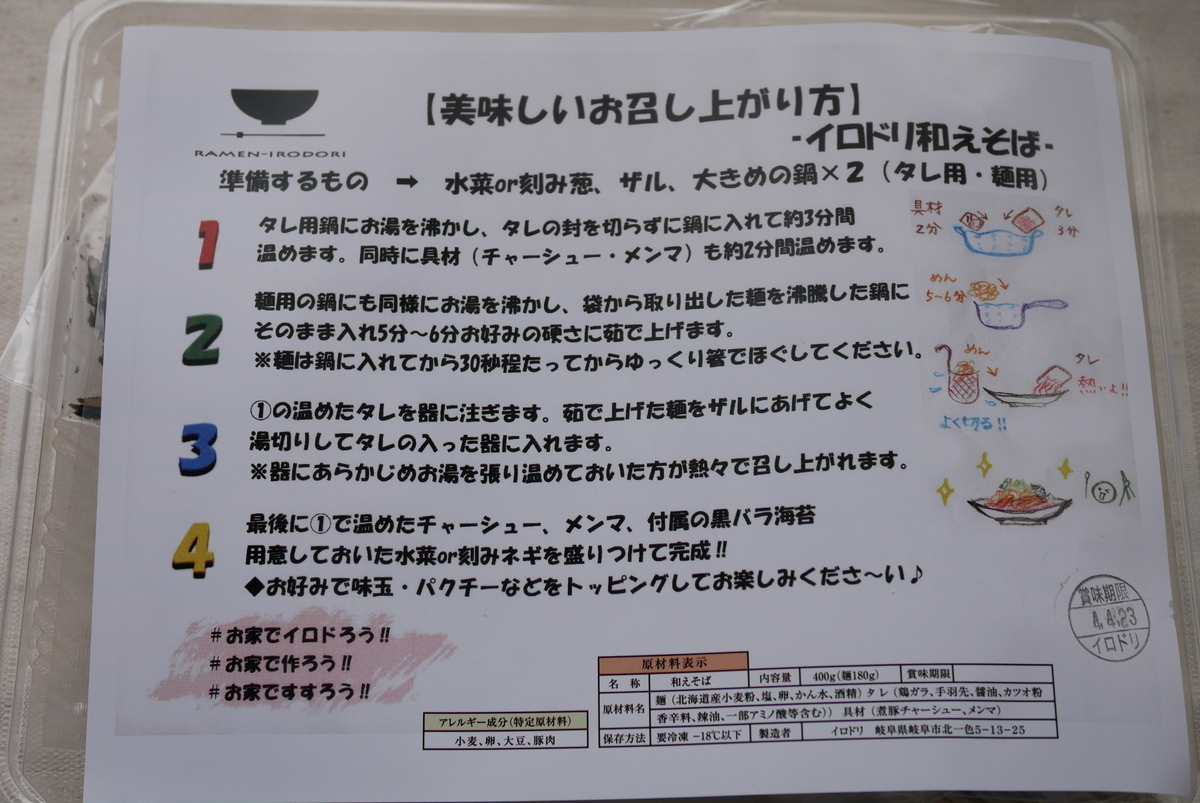 RAMEN-IRODORI
【美味しいお召し上がり方】
-イロドリ和えそば-
準備するもの ➡ 水菜or刻み葱、ザル、大きめの鍋×2（タレ用・麺用）
1
タレ用鍋にお湯を沸かし、タレの封を切らずに鍋に入れて約3分間
温めます。同時に具材（チャーシュー・メンマ）も約2分間温めます。
具材
2分
タレ
3分
2
麺用の鍋にも同様にお湯を沸かし、袋から取り出した麺を沸騰した鍋に
そのまま入れ5分～6分お好みの硬さに茹で上げます。
※麺は鍋に入れてから30秒程たってからゆっくり箸でほぐしてください。
めん
5~6分
3
①の温めたタレを器に注ぎます。茹で上げた麺をザルにあげてよく
湯切りしてタレの入った器に入れます。
※器にあらかじめお湯を張り温めておいた方が熱々で召し上がれます。
めん
タレ
熱いよ!!
よく切る!!
4
最後に①で温めたチャーシュー、メンマ、付属の黒バラ海苔
用意しておいた水菜or刻みネギを盛りつけて完成!!
◆お好みで味玉・パクチーなどをトッピングしてお楽しみくださ～い♪
#お家でイロドろう!!
#お家で作ろう!!
#お家ですすろう!!
賞味期限
4.4.23
イロドリ
アレルギー成分(特定原材料)
小麦、卵、大豆、豚肉
原材料表示
名 称 和えそば 内容量 400g(麺180g) 賞味期限
原材料名 麺（北海道産小麦粉、塩、卵、かん水、酒精）タレ（鶏ガラ、手羽先、醤油、カツオ粉
香辛料、辣油、一部アミノ酸等含む)） 具材（煮豚チャーシュー、メンマ）
保存方法 要冷凍 -18℃以下 製造者 イロドリ 岐阜県岐阜市北一色5-13-25